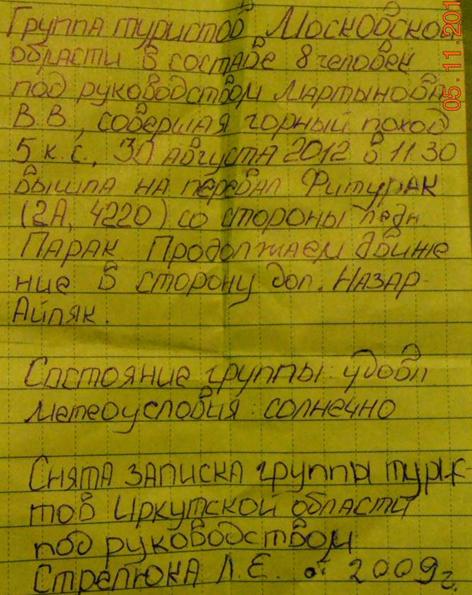 Группа туристов Московской
области в составе 8 человек
под руководством Мартынова
В.В, совершая горный поход
5 к.с., 30 августа 2012 в 11.30
вышла на перевал Фитурак
(2А, 4220) со стороны ледн
Парак Продолжаем движе
ние в сторону дол. Назар-
Айляк.
Состояние группы: удовл
метеоусловия: солнечно
Снята записка группы турис
тов Иркутской области
под руководством
Стрелюка Л.Е. от 2009г.
05.11.201